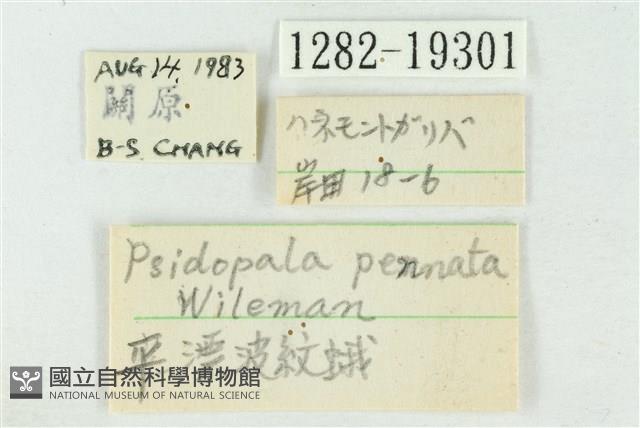 AUG 14, 1983
關原
B-S CHANG
1282-19301
ハネモントガリバ
岸田 18-6
Psidopala pennata
Wileman
平漂波紋蛾
國立自然科學博物館
NATIONAL MUSEUM OF NATURAL SCIENCE